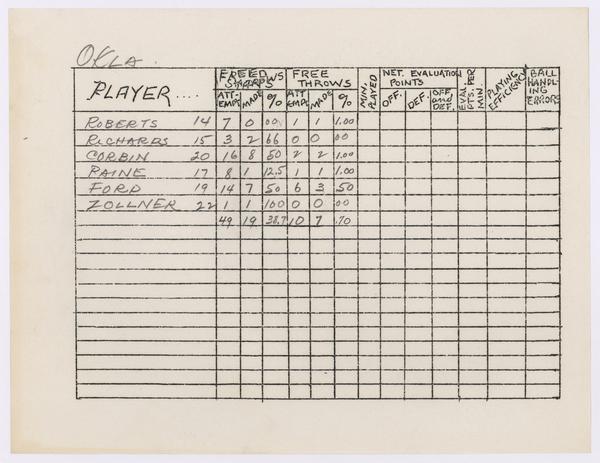 OKLA.
PLAYER .... FREE THROWS FREE THROWS MIN. PLAYED NET. EVALUATION POINTS EVAL. PTS. PER MIN. PLAYING EFFICIENCY BALL HANDL- ING ERRORS
ATT- EMPT MADE % ATT EMPT MADE % OFF. DEF. OFF. and DEF.
ROBERTS 14 7 0 00 1 1 1.00
RICHARDS 15 3 2 66 0 0 00
CORBIN 20 16 8 50 2 2 1.00
PAINE 17 8 1 12.5 1 1 1.00
FORD 19 14 7 50 6 3 50
ZOLLNER 22 1 1 100 0 0 00
49 19 38.7 10 7 .70